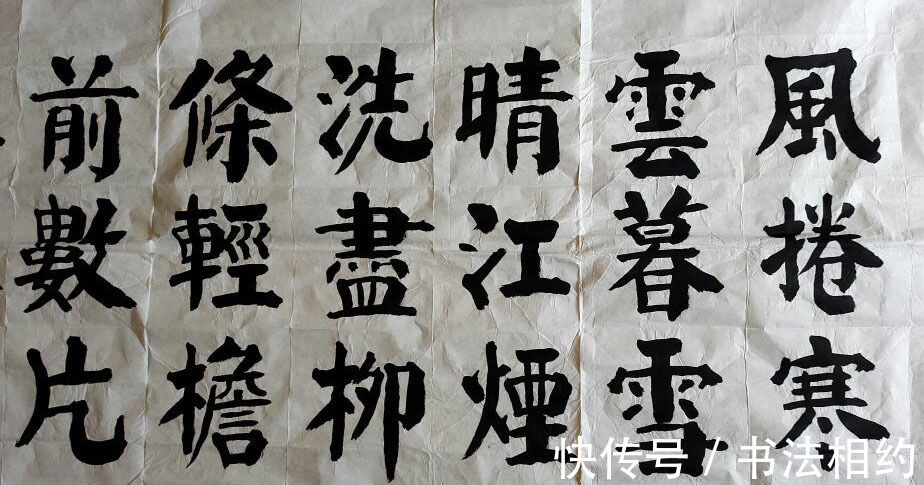 風捲寒
雲暮雪
晴江煙
洗盡柳
條輕檐
前數片
快传号 / 书法相约